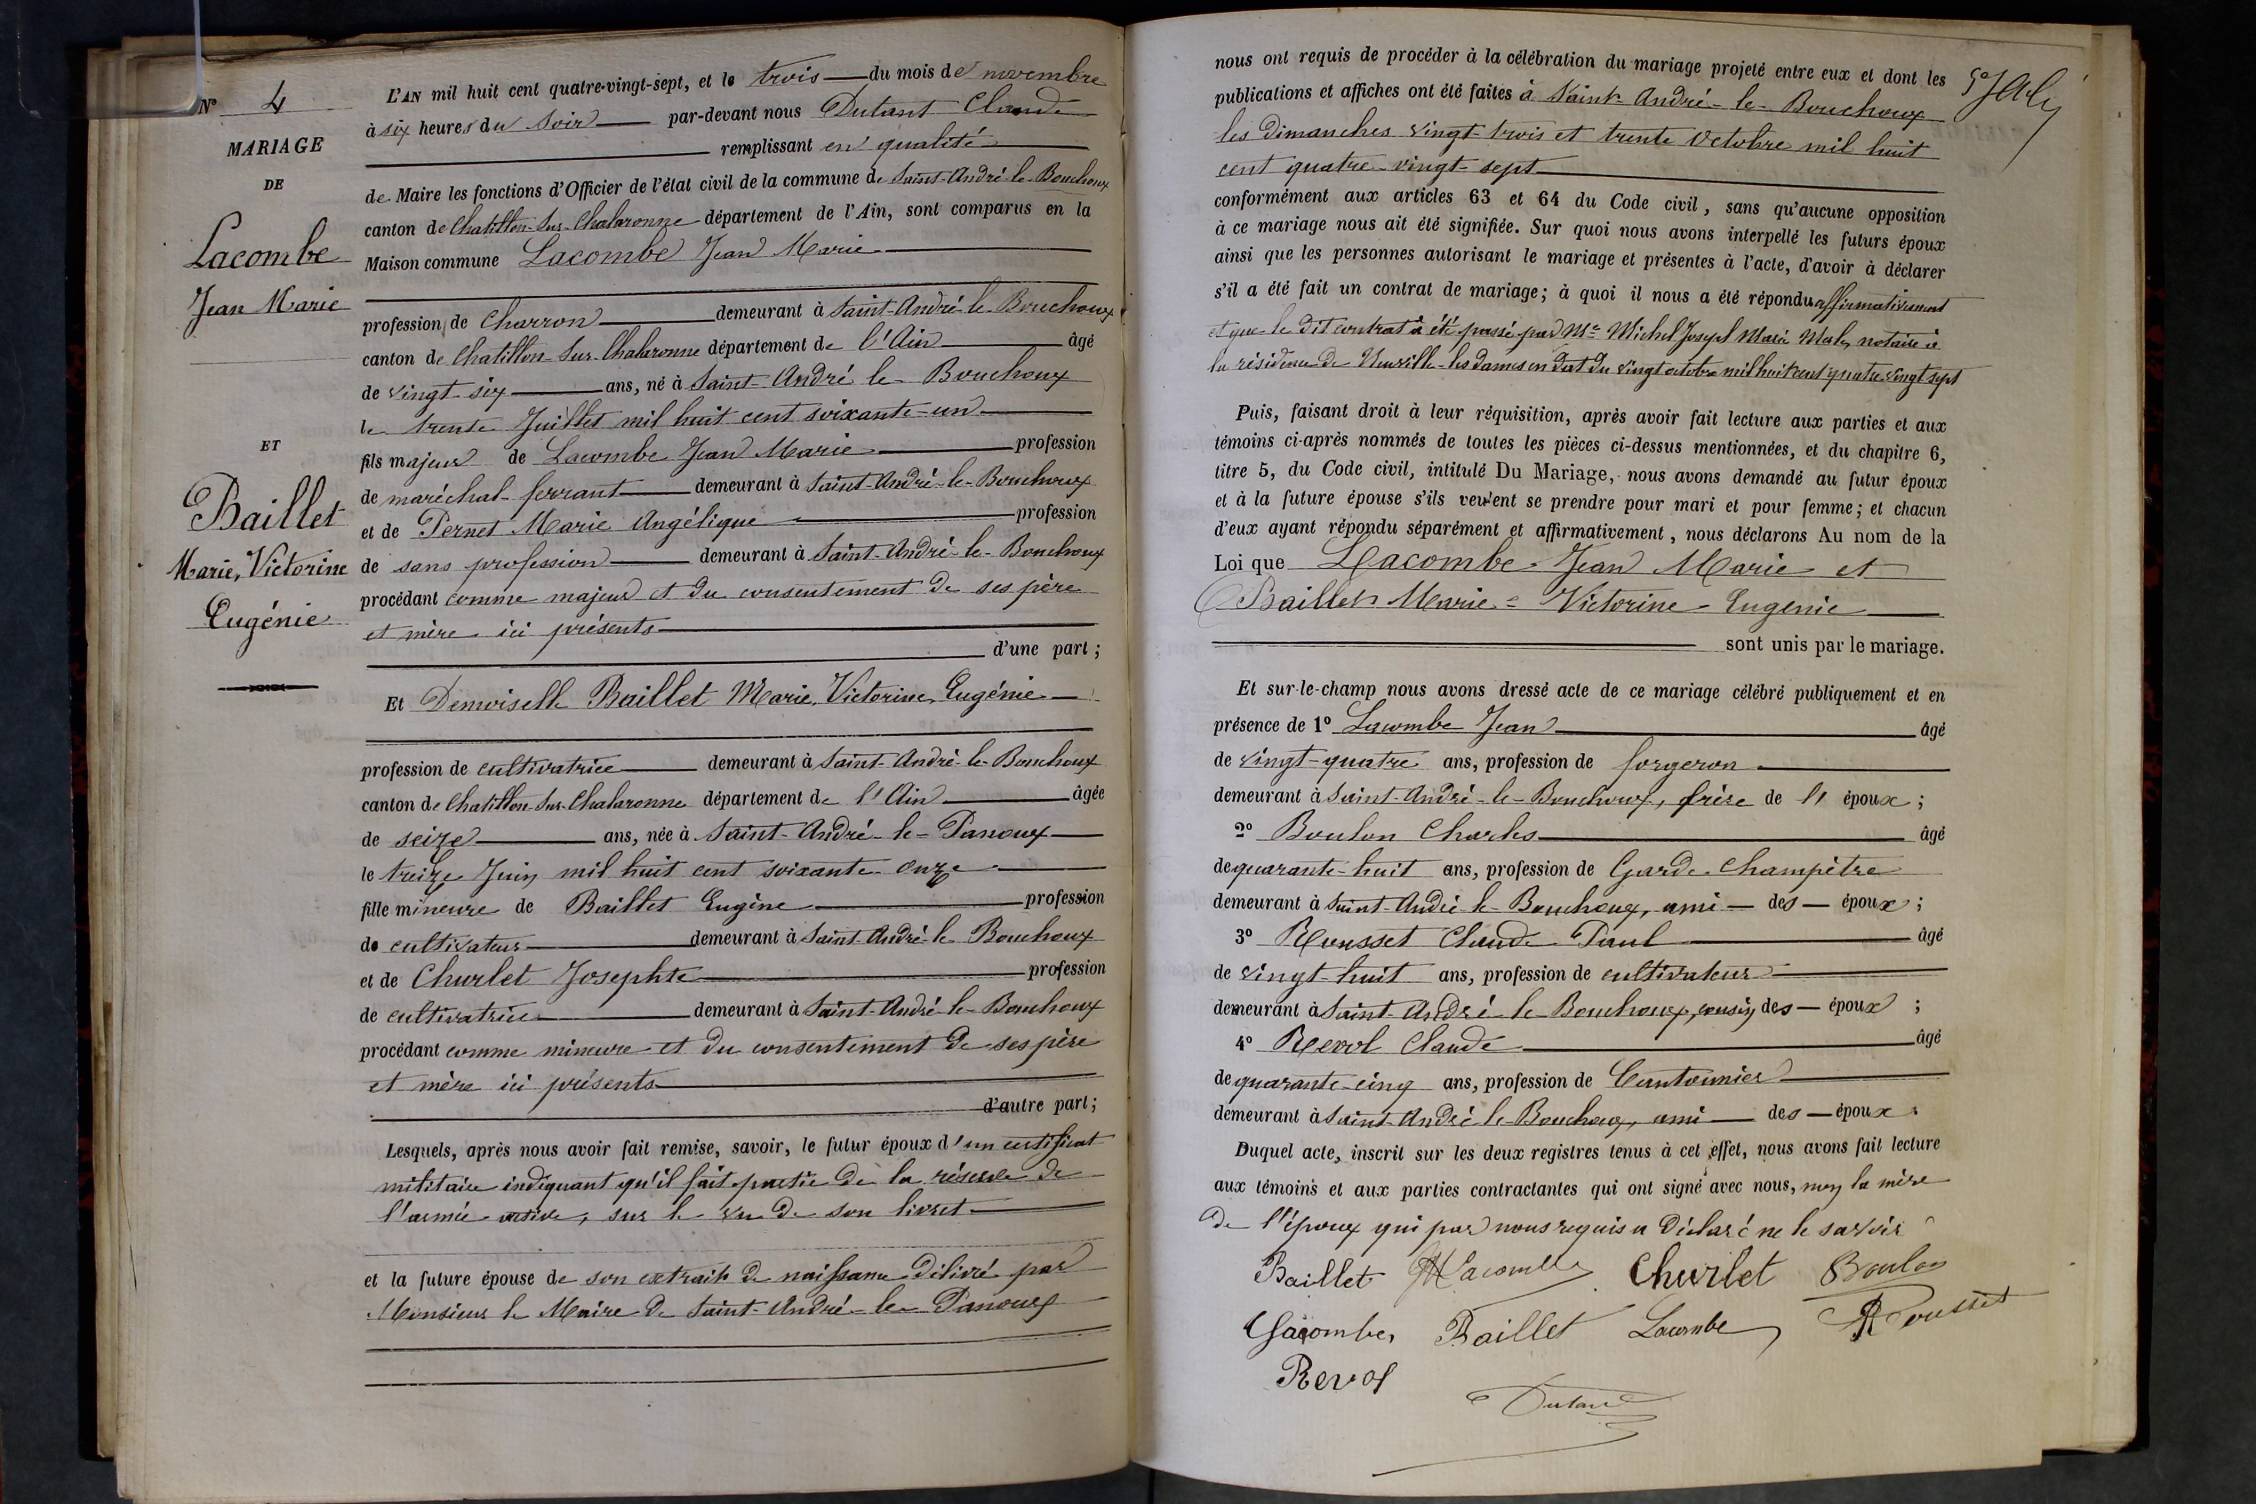 N° 4
MARIAGE
DE
Lacombe
Jean Marie
ET
Baillet
Marie, Victorine
Eugénie
L'AN mil huit cent quatre-vingt-sept, et le trois du mois de novembre
à six heures du soir par-devant nous Dutant Claude
remplissant en qualité
de Maire les fonctions d'Officier de l'état civil de la commune de Saint-André-le-Bouchoux
canton de Chatillon-sur-Chalaronne département de l'Ain, sont comparus en la
Maison commune Lacombe Jean Marie
profession de Charron demeurant à Saint-André-le-Bouchoux
canton de Chatillon-sur-Chalaronne département de l'Ain âgé
de vingt-six ans, né à Saint-André-le-Bouchoux
le trente Juillet mil huit cent soixante-un
fils majeur de Lacombe Jean Marie profession
de maréchal-ferrant demeurant à Saint-André-le-Bouchoux
et de Pernet Marie Angélique profession
de sans profession demeurant à Saint-André-le-Bouchoux
procédant comme majeur et du consentement de ses père
et mère ici présents
d'une part ;
Et Demoiselle Baillet Marie, Victorine, Eugénie
profession de cultivatrice demeurant à Saint-André-le-Bouchoux
canton de Chatillon-sur-Chalaronne département de l'Ain âgée
de seize ans, née à Saint-André-le-Panoux
le treize Juin mil huit cent soixante-onze
fille mineure de Baillet Eugène profession
de cultivateur demeurant à Saint-André-le-Bouchoux
et de Churlet Josephte profession
de cultivatrice demeurant à Saint-André-le-Bouchoux
procédant comme mineure et du consentement de ses père
et mère ici présents
d'autre part ;
Lesquels, après nous avoir fait remise, savoir, le futur époux d'un certificat
militaire indiquant qu'il fait partie de la réserve de
l'armée active, sur le vu de son livret
et la future épouse de son extrait de naissance délivré par
Monsieur le Maire de Saint-André-le-Panoux
nous ont requis de procéder à la célébration du mariage projeté entre eux et dont les
publications et affiches ont été faites à Saint-André-le-Bouchoux
les dimanches vingt-trois et trente Octobre mil huit
cent quatre-vingt-sept
conformément aux articles 63 et 64 du Code civil, sans qu'aucune opposition
à ce mariage nous ait été signifiée. Sur quoi nous avons interpellé les futurs époux
ainsi que les personnes autorisant le mariage et présentes à l'acte, d'avoir à déclarer
s'il a été fait un contrat de mariage ; à quoi il nous a été répondu affirmativement
et que le dit contrat a été passé par Me Michel Joseph Marie notaire à
la résidence de Neuville-les-dames en dat du vingt octobre mil huit cent quatre vingt sept
Puis, faisant droit à leur réquisition, après avoir fait lecture aux parties et aux
témoins ci-après nommés de toutes les pièces ci-dessus mentionnées, et du chapitre 6,
titre 5, du Code civil, intitulé Du Mariage, nous avons demandé au futur époux
et à la future épouse s'ils veulent se prendre pour mari et pour femme ; et chacun
d'eux ayant répondu séparément et affirmativement, nous déclarons Au nom de la
Loi que Lacombe Jean Marie et
Baillet Marie-Victorine-Eugénie
sont unis par le mariage.
Et sur-le-champ nous avons dressé acte de ce mariage célébré publiquement et en
présence de 1° Lacombe Jean âgé
de vingt-quatre ans, profession de forgeron
demeurant à Saint-André-le-Bouchoux, frère de l' époux ;
2° Boulon Charles âgé
de quarante-huit ans, profession de Garde-Champêtre
demeurant à Saint-André-le-Bouchoux, ami des époux ;
3° Rousset Claude Paul âgé
de vingt-huit ans, profession de cultivateur
demeurant à Saint-André-le-Bouchoux, cousin des époux ;
4° Revol Claude âgé
de quarante-cinq ans, profession de Cantonnier
demeurant à Saint-André-le-Bouchoux, ami des époux.
Duquel acte, inscrit sur les deux registres tenus à cet effet, nous avons fait lecture
aux témoins et aux parties contractantes qui ont signé avec nous, non la mère
de l'époux qui par nous requis a déclaré ne le savoir
Baillet Lacombe Churlet Boulon
Lacombe Baillet Lacombe Rousset
Revol
Dutant